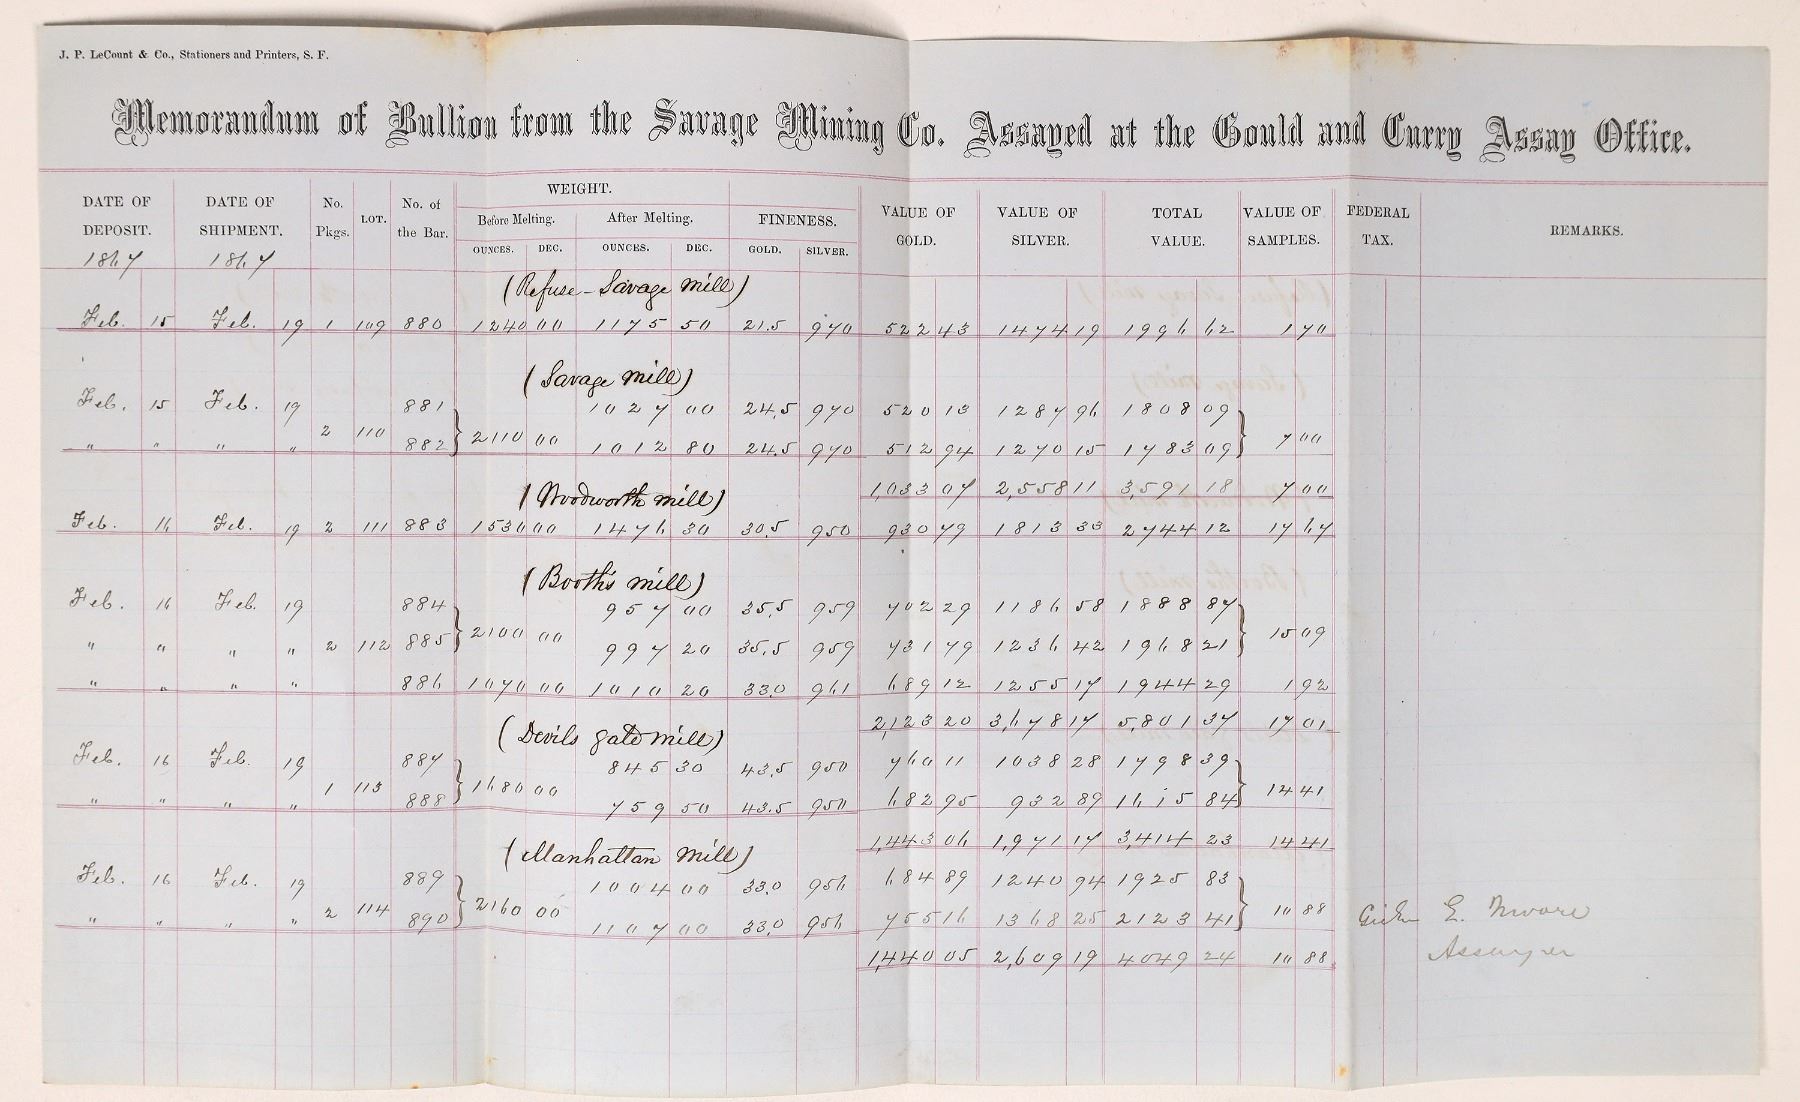 J. P. LeCount & Co., Stationers and Printers, S. F.
Memorandum of Bullion from the Savage Mining Co. Assayed at the Gould and Curry Assay Office.
DATE OF DEPOSIT. DATE OF SHIPMENT. No. Pkgs. LOT. No. of the Bar. WEIGHT. Before Melting. OUNCES. DEC. After Melting. OUNCES. DEC. FINENESS. GOLD. SILVER. VALUE OF GOLD. VALUE OF SILVER. TOTAL VALUE. VALUE OF SAMPLES. FEDERAL TAX. REMARKS.
1867 1867
(Refuse - Savage Mill)
Feb. 15 Feb. 19 1 109 880 1240 00 1175 50 21.5 970 522 43 1474 19 1996 62 1 70
(Savage Mill)
Feb. 15 Feb. 19 881 1027 00 24.5 970 520 13 1287 96 1808 09
2 110 2110 00 7 00
" " " " 882 1012 80 24.5 970 512 94 1270 15 1783 09
1,033 07 2,558 11 3,591 18 7 00
(Woodworth Mill)
Feb. 16 Feb. 19 2 111 883 1530 00 1476 30 30.5 950 930 79 1813 33 2744 12 17 67
(Booth's Mill)
Feb. 16 Feb. 19 884 957 00 35.5 959 702 29 1186 58 1888 87
" " " " 2 112 885 2100 00 997 20 35.5 959 731 79 1236 42 1968 21 15 09
" " " " 886 1070 00 1010 20 33.0 961 689 12 1255 17 1944 29 1 92
2,123 20 3,678 17 5,801 37 17 01
(Devils Gate Mill)
Feb. 16 Feb. 19 887 845 30 43.5 950 760 11 1038 28 1798 39
1 113 1680 00 14 41
" " " " 888 759 50 43.5 950 682 95 932 89 1615 84
1,443 06 1,971 17 3,414 23 14 41
(Manhattan Mill)
Feb. 16 Feb. 19 889 1004 00 33.0 956 684 89 1240 94 1925 83
2 114 2160 00 10 88
" " " " 890 1107 00 33.0 956 755 16 1368 25 2123 41
E. Moore
1,440 05 2,609 19 4049 24 10 88
Assayer